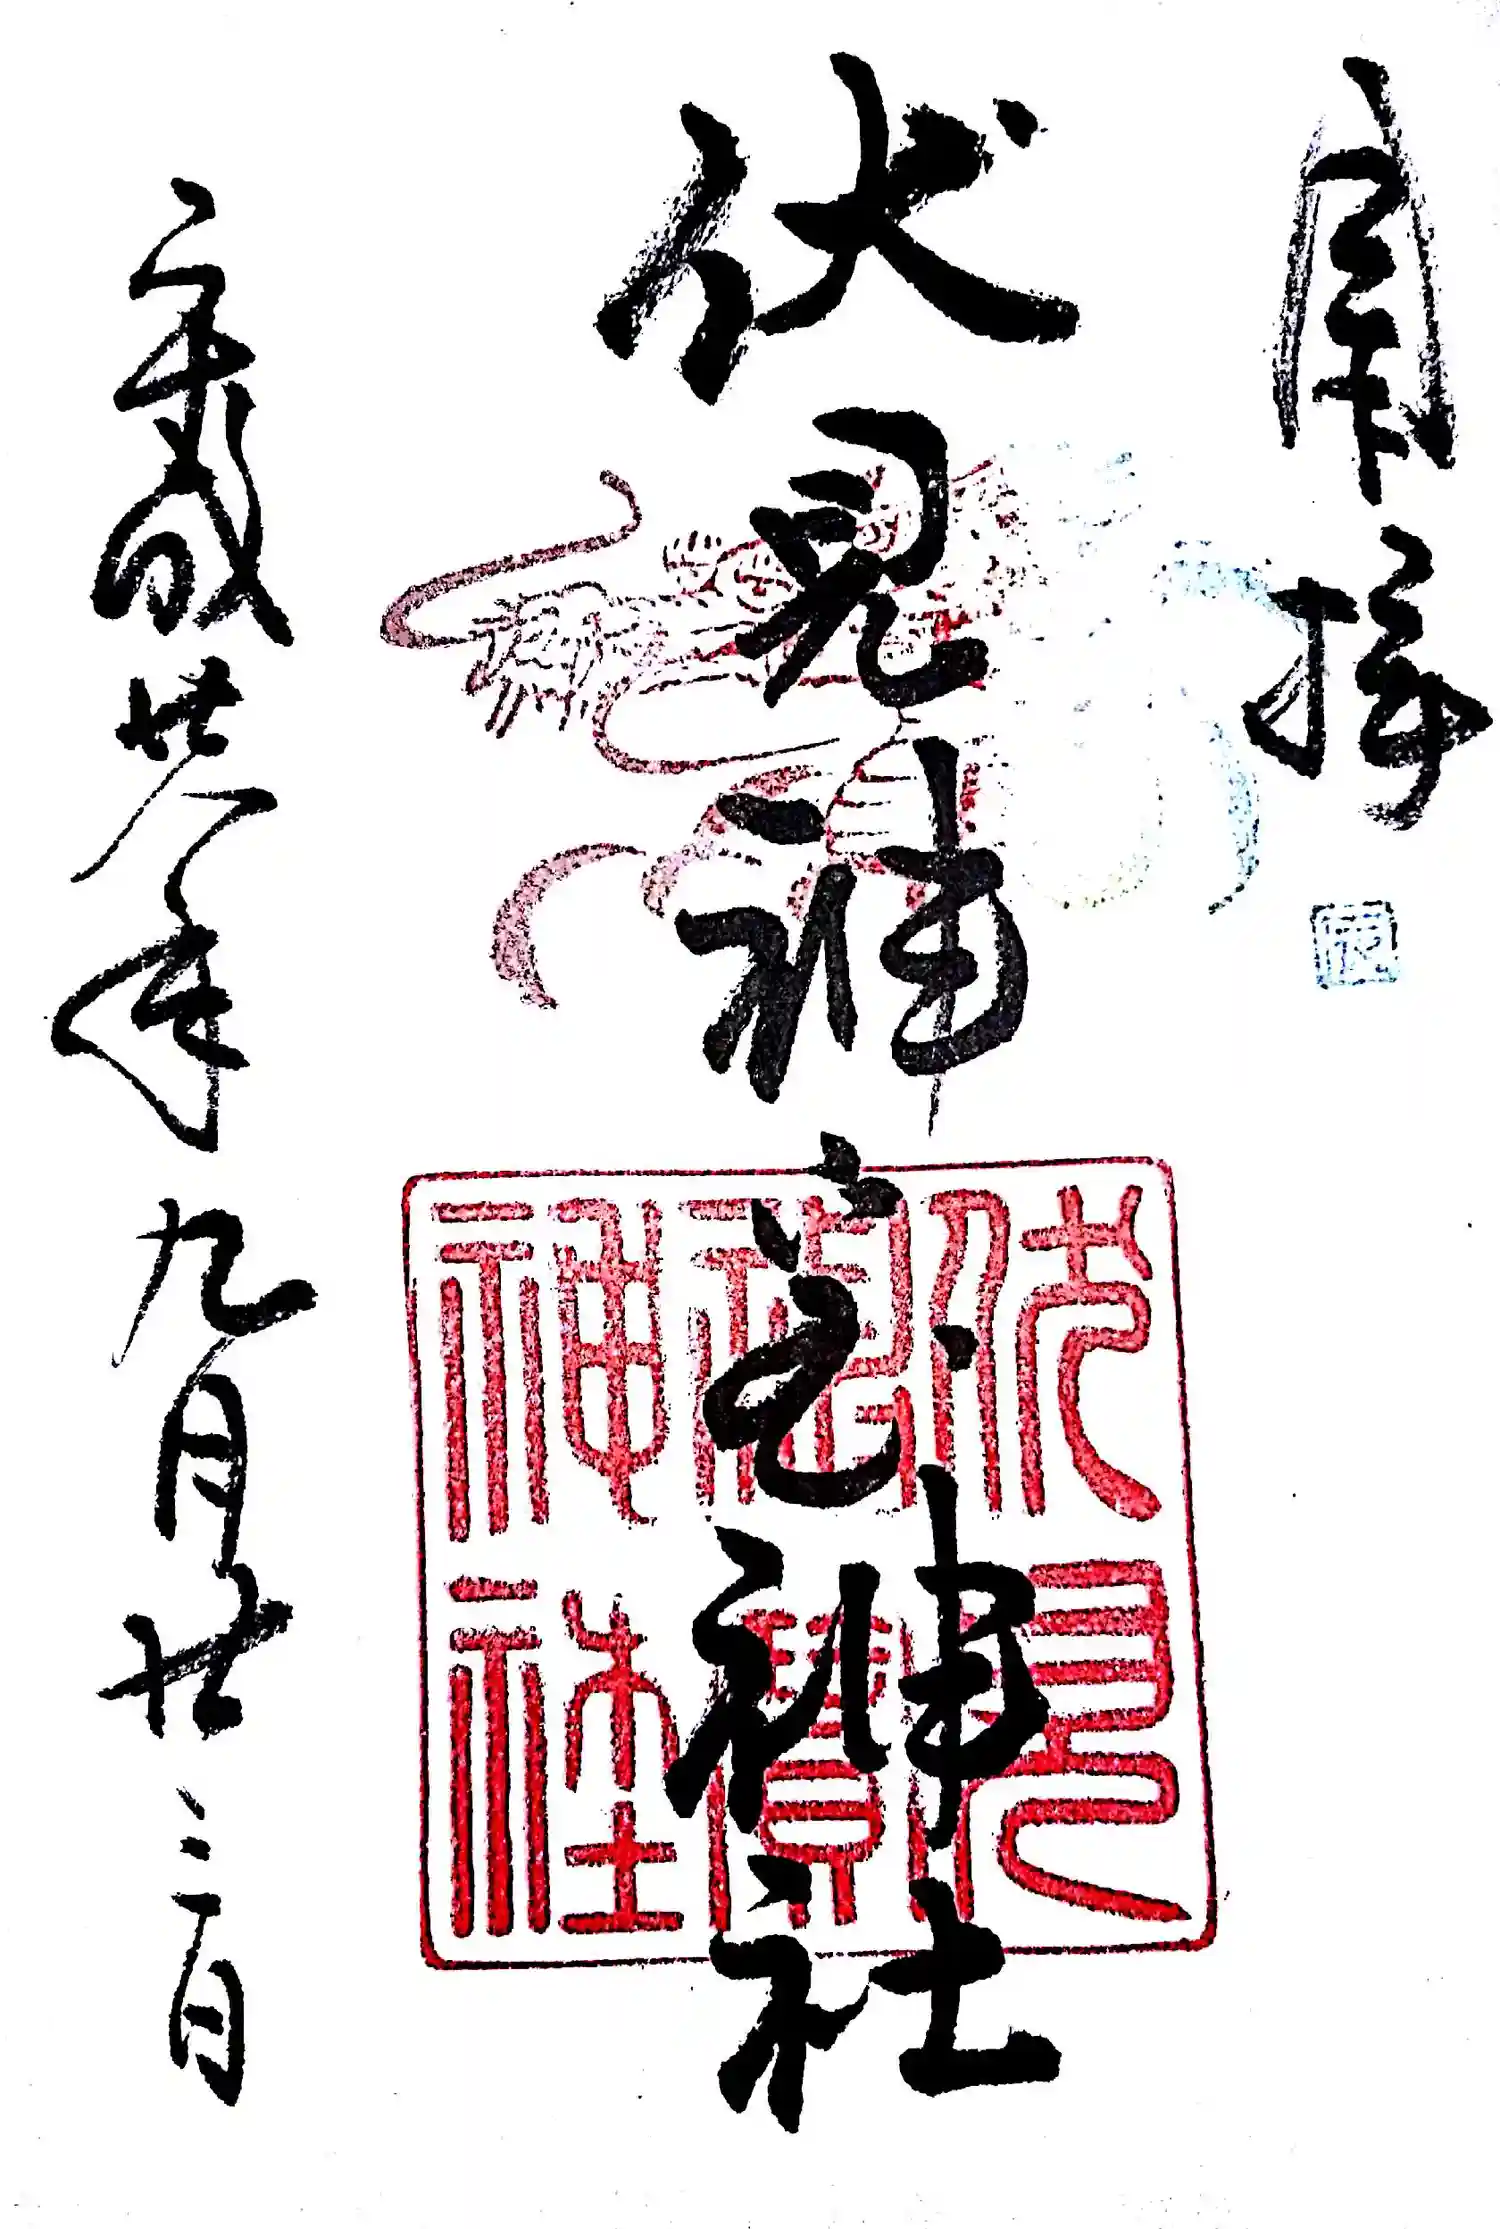 奉拝
伏見神宝神社
平成廿八年九月廿三日
伏見
神寳
神社